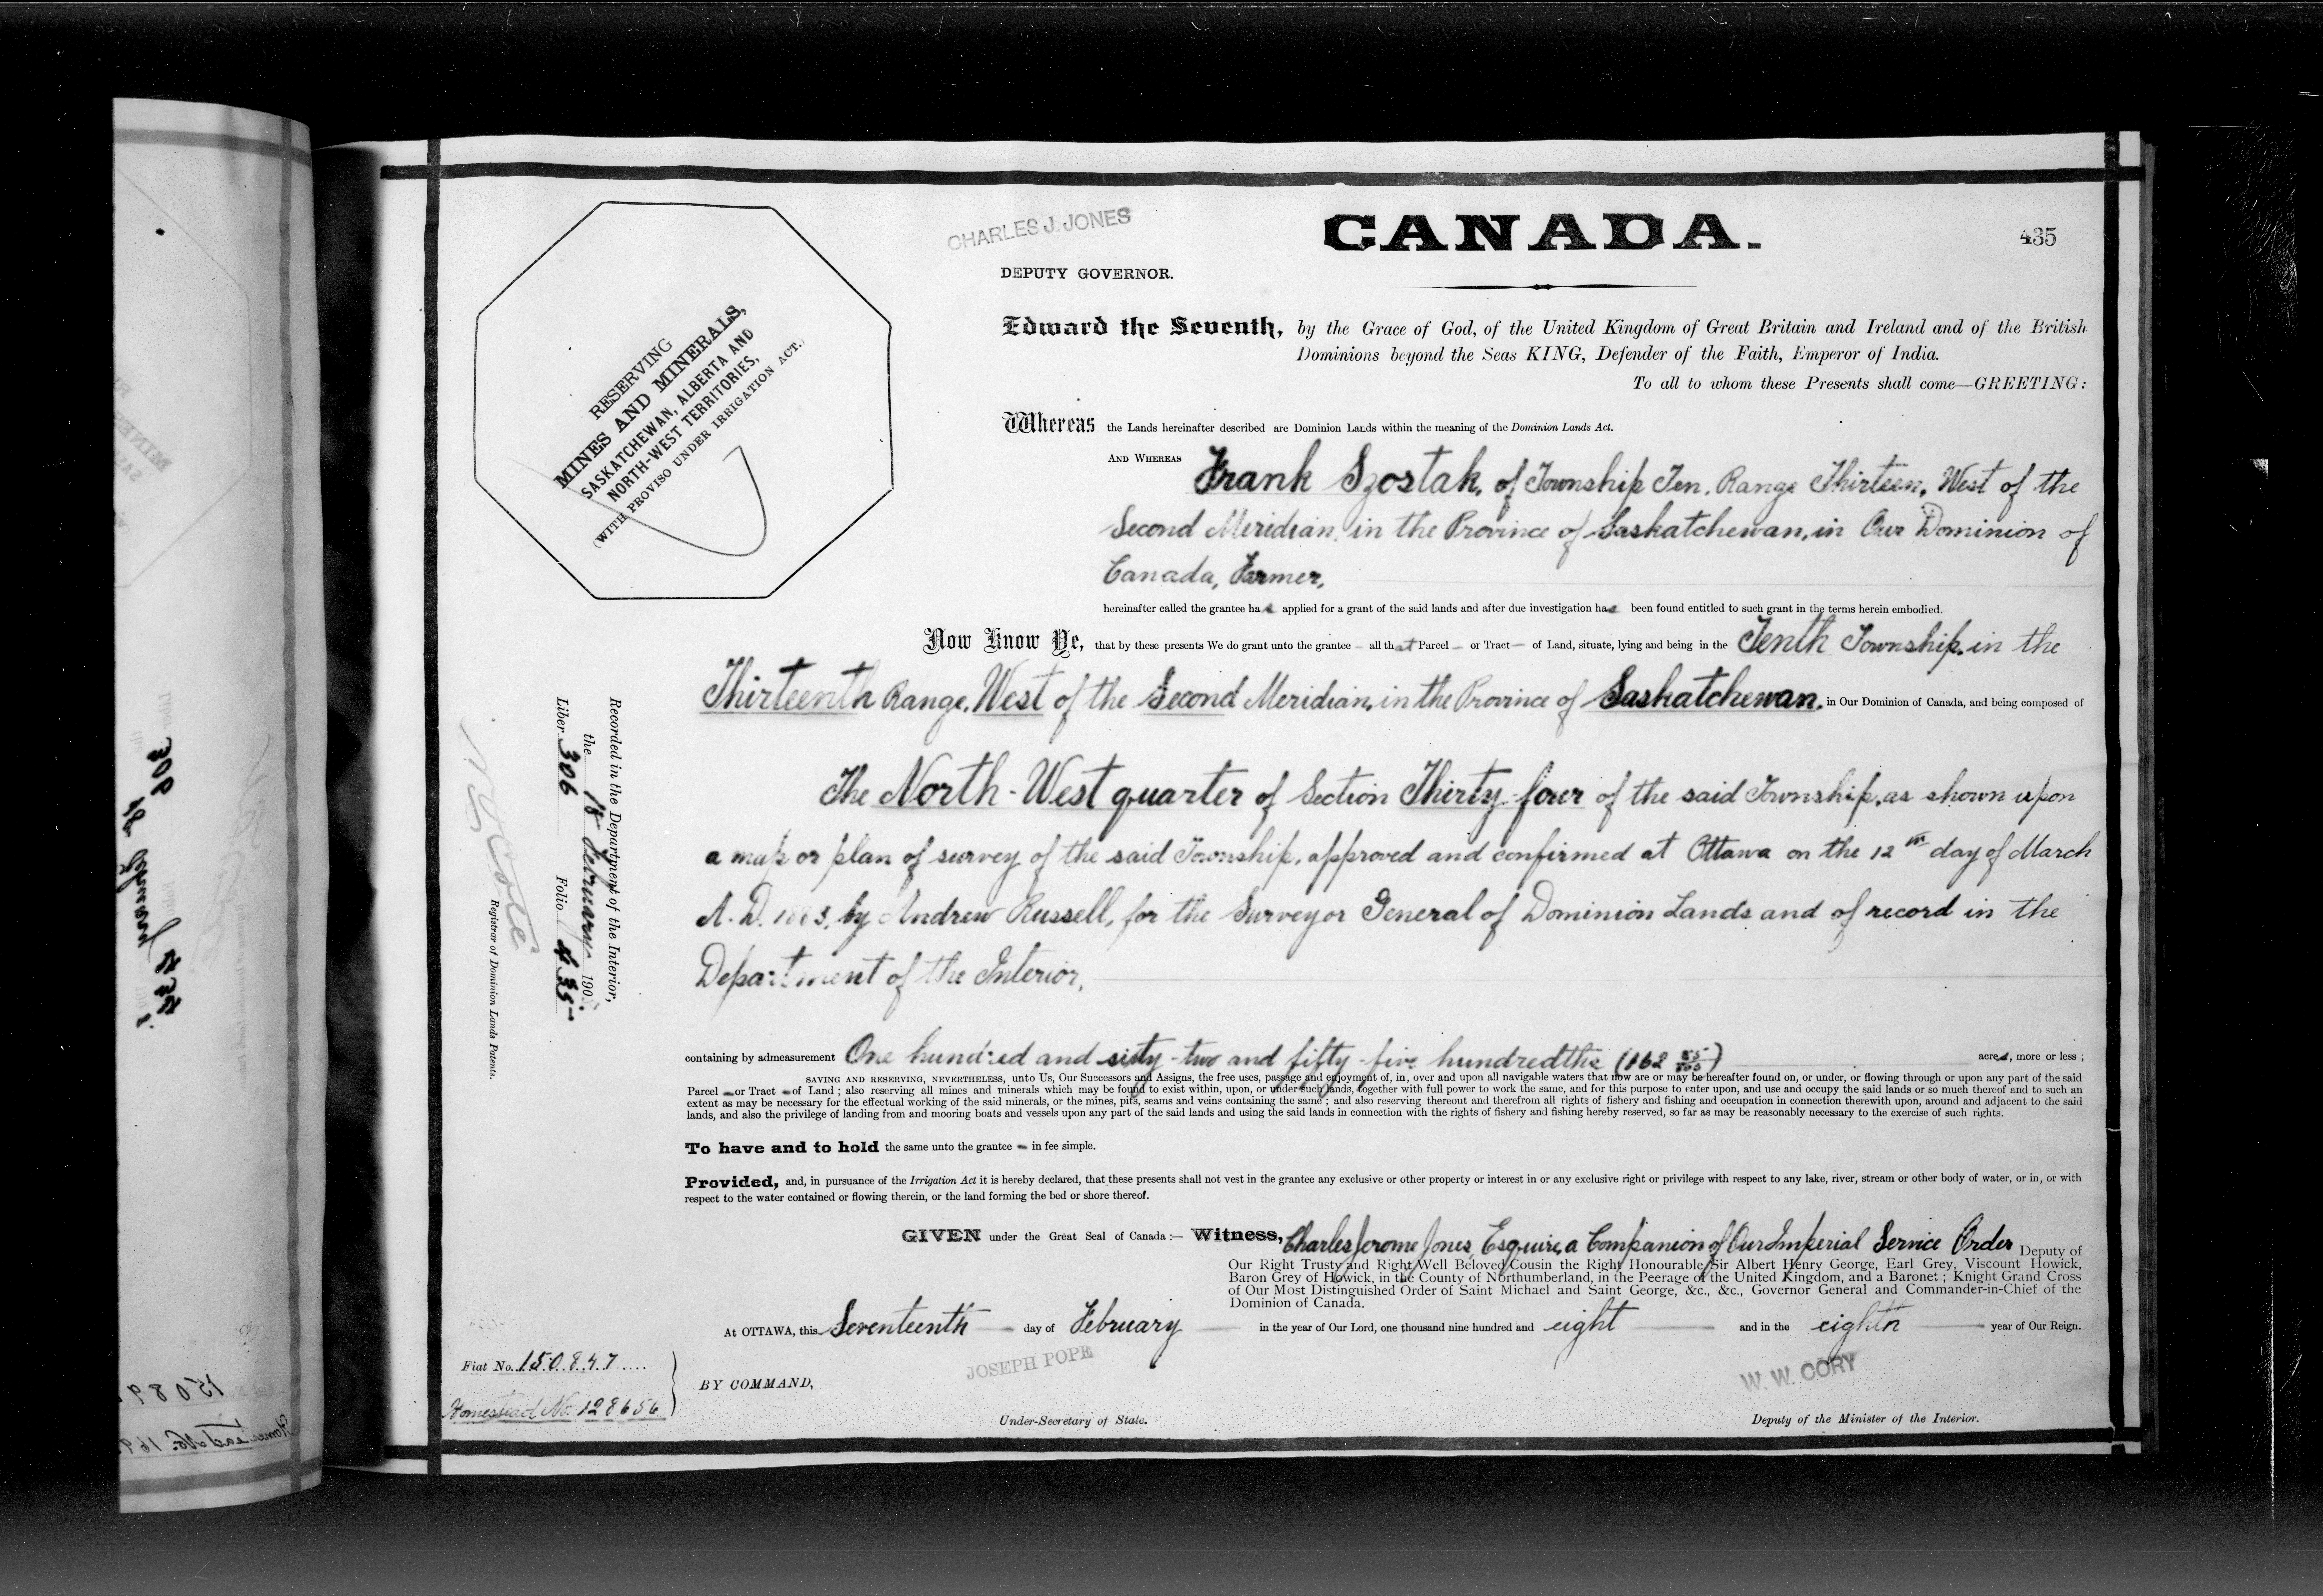 CHARLES J. JONES
CANADA.
435
DEPUTY GOVERNOR.
RESERVING
MINES AND MINERALS,
SASKATCHEWAN, ALBERTA AND
NORTH-WEST TERRITORIES,
(WITH PROVISO UNDER IRRIGATION ACT.)
Edward the Seventh, by the Grace of God, of the United Kingdom of Great Britain and Ireland and of the British
Dominions beyond the Seas KING, Defender of the Faith, Emperor of India.
To all to whom these Presents shall come—GREETING:
Whereas the Lands hereinafter described are Dominion Lands within the meaning of the Dominion Lands Act.
AND WHEREAS Frank Szostak, of Township Ten, Range Thirteen, West of the
Second Meridian, in the Province of Saskatchewan, in Our Dominion of
Canada, Farmer,
hereinafter called the grantee has applied for a grant of the said lands and after due investigation has been found entitled to such grant in the terms herein embodied.
Now Know Ye, that by these presents We do grant unto the grantee – all that Parcel – or Tract – of Land, situate, lying and being in the Tenth Township, in the
Thirteenth Range, West of the Second Meridian, in the Province of Saskatchewan, in Our Dominion of Canada, and being composed of
The North-West quarter of Section Thirty-four of the said Township, as shown upon
a map or plan of survey of the said Township, approved and confirmed at Ottawa on the 12th day of March
A.D. 1883, by Andrew Russell, for the Surveyor General of Dominion Lands and of record in the
Department of the Interior,
containing by admeasurement One hundred and sixty-two and fifty-five hundredths (162 55/100) acres, more or less ;
SAVING AND RESERVING, NEVERTHELESS, unto Us, Our Successors and Assigns, the free uses, passage and enjoyment of, in, over and upon all navigable waters that now are or may be hereafter found on, or under, or flowing through or upon any part of the said
Parcel – or Tract – of Land ; also reserving all mines and minerals which may be found to exist within, upon, or under such lands, together with full power to work the same, and for this purpose to enter upon, and use and occupy the said lands or so much thereof and to such an
extent as may be necessary for the effectual working of the said minerals, or the mines, pits, seams and veins containing the same ; and also reserving thereout and therefrom all rights of fishery and fishing and occupation in connection therewith upon, around and adjacent to the said
lands, and also the privilege of landing from and mooring boats and vessels upon any part of the said lands and using the said lands in connection with the rights of fishery and fishing hereby reserved, so far as may be reasonably necessary to the exercise of such rights.
To have and to hold the same unto the grantee – in fee simple.
Provided, and, in pursuance of the Irrigation Act it is hereby declared, that these presents shall not vest in the grantee any exclusive or other property or interest in or any exclusive right or privilege with respect to any lake, river, stream or other body of water, or in, or with
respect to the water contained or flowing therein, or the land forming the bed or shore thereof.
GIVEN under the Great Seal of Canada :— Witness, Charles Jerome Jones, Esquire, a Companion of Our Imperial Service Order Deputy of
Our Right Trusty and Right Well Beloved Cousin the Right Honourable Sir Albert Henry George, Earl Grey, Viscount Howick,
Baron Grey of Howick, in the County of Northumberland, in the Peerage of the United Kingdom, and a Baronet ; Knight Grand Cross
of Our Most Distinguished Order of Saint Michael and Saint George, &c., &c., Governor General and Commander-in-Chief of the
Dominion of Canada.
At OTTAWA, this Seventeenth day of February in the year of Our Lord, one thousand nine hundred and eight and in the eighth year of Our Reign.
JOSEPH POPE
W. W. CORY
BY COMMAND,
Under-Secretary of State.
Deputy of the Minister of the Interior.
Fiat No. 150847
Homestead No. 128656
Recorded in the Department of the Interior,
the 18 February 190
Liber 306 Folio 435
N O Coté
Registrar of Dominion Lands Patents.